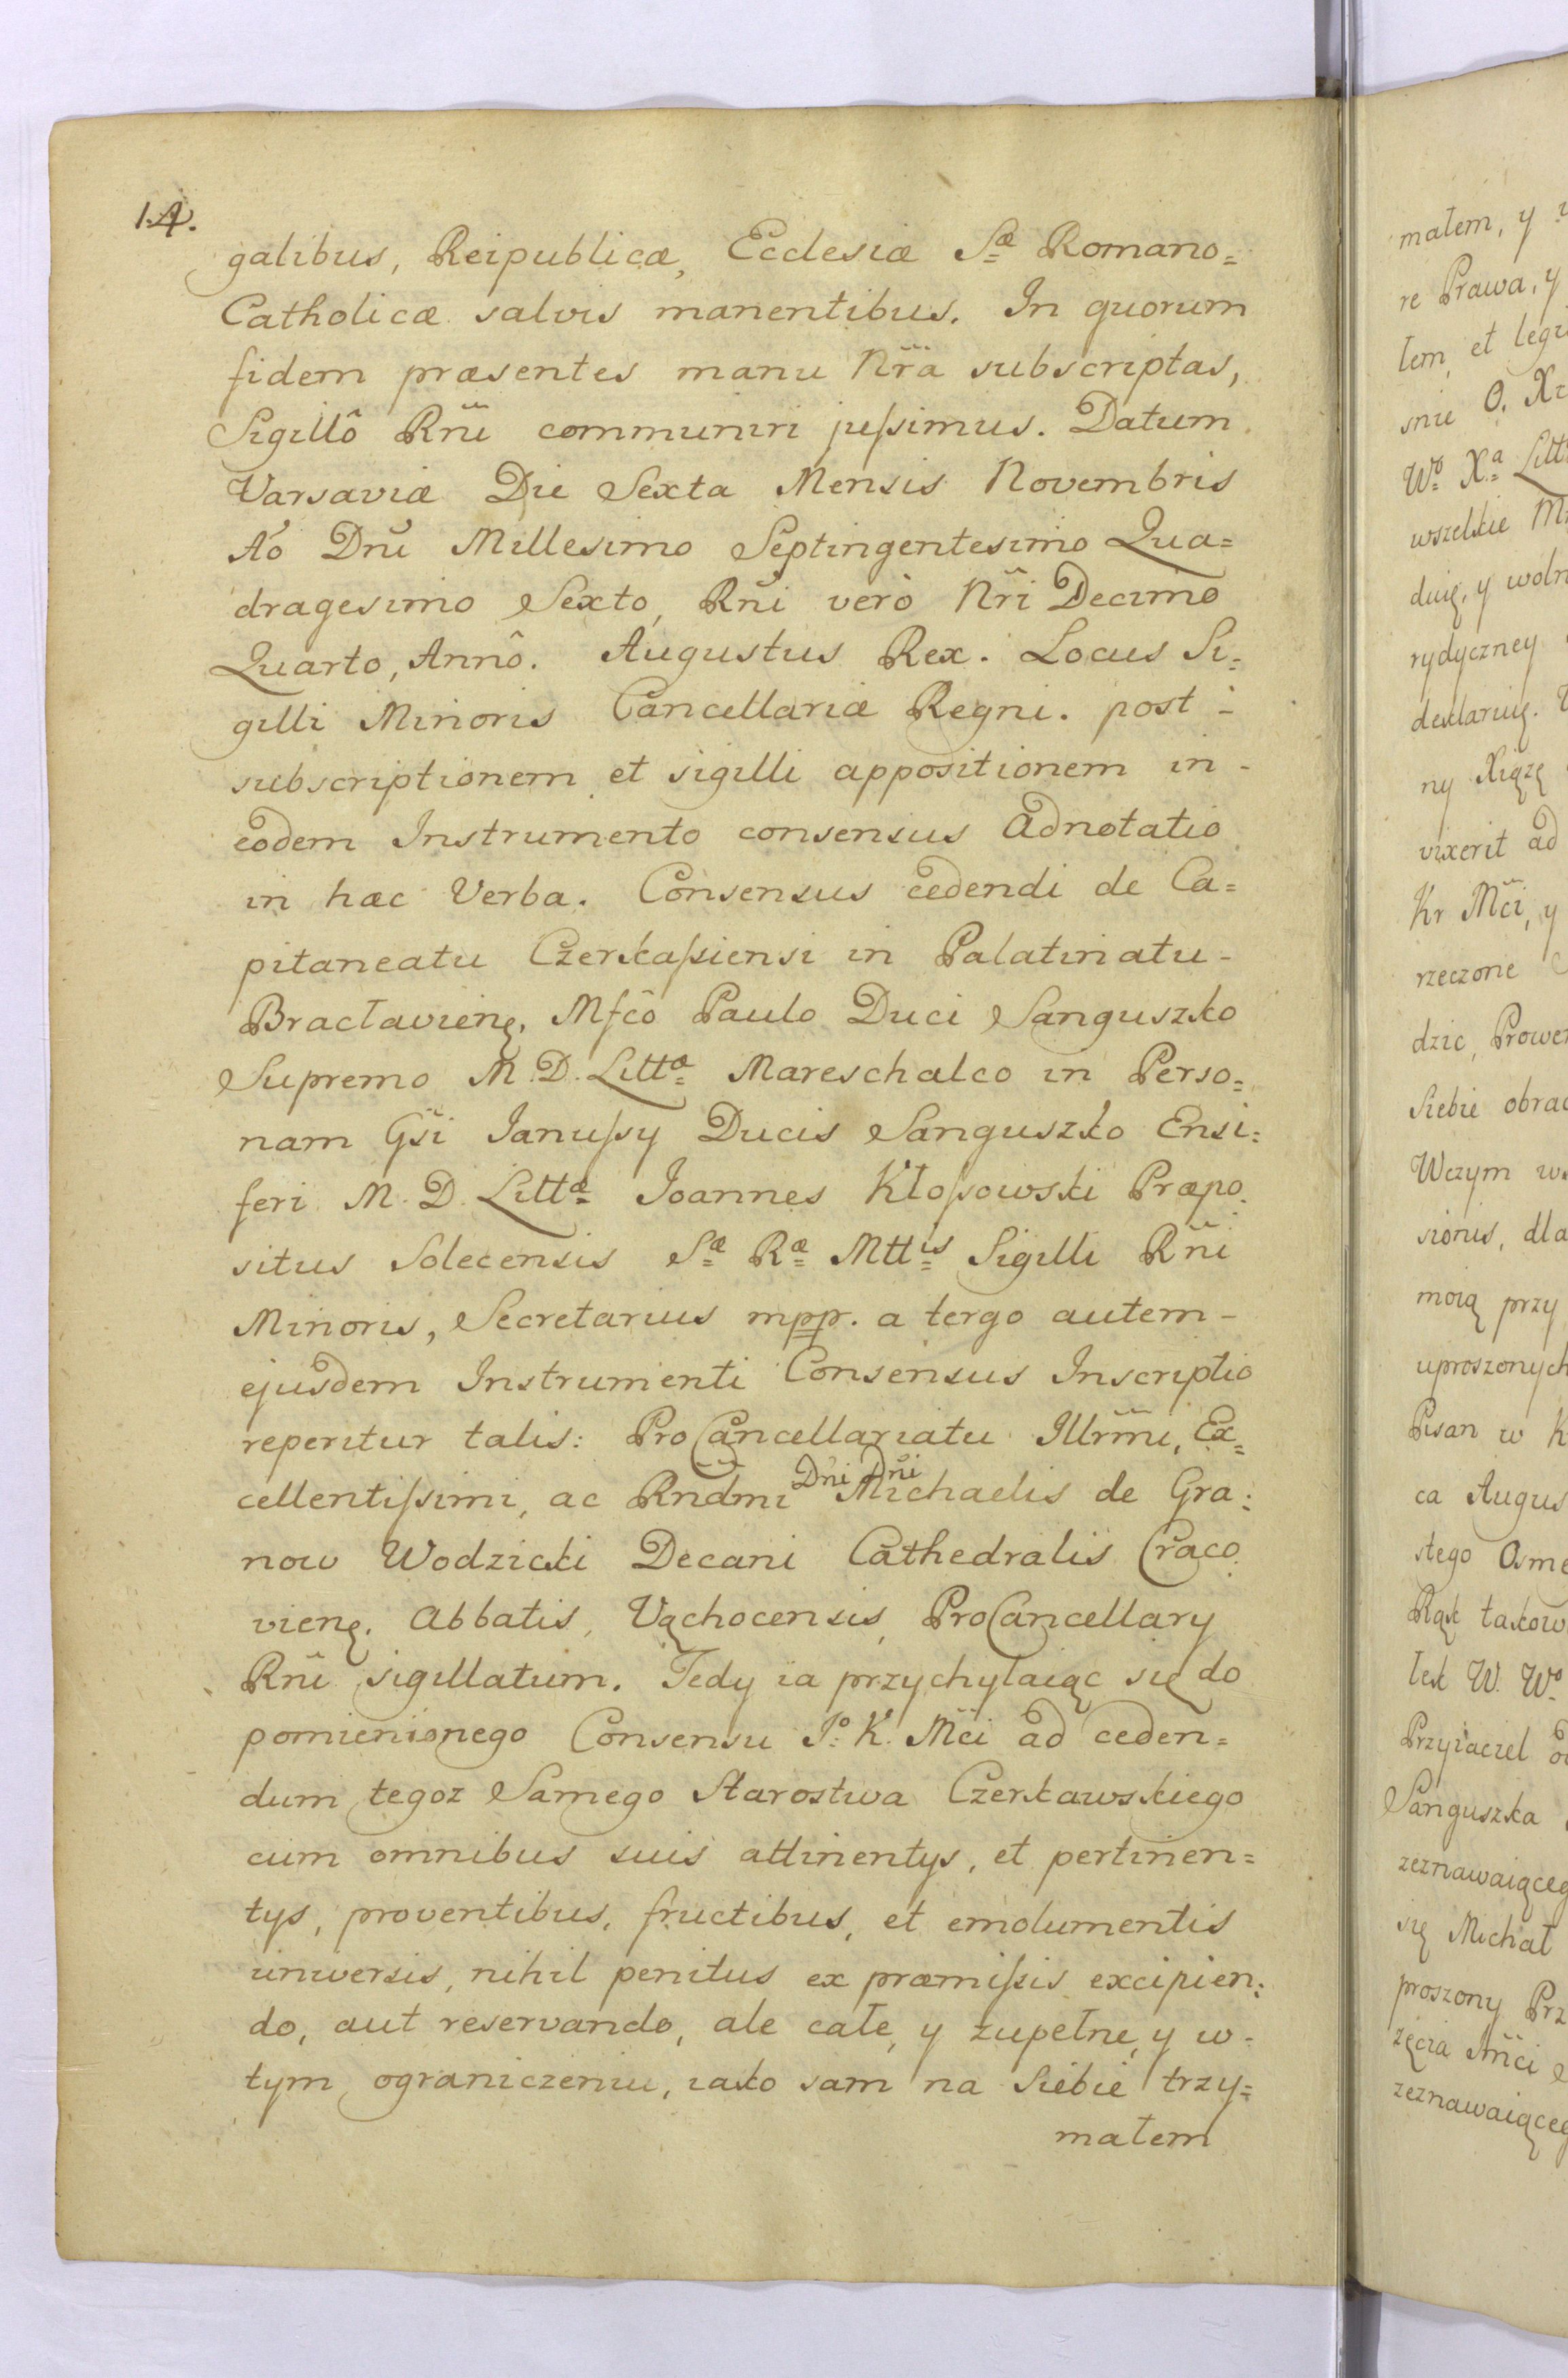 14.
galibus, Reipublicæ, Ecclesiæ Sæ Romano=
Catholicæ salvis manentibus. In quorum
fidem præsentes manu Nr̃a subscriptas,
Sigillô Rñi communiri jussimus. Datum
Varsaviæ Die Sexta Mensis Novembris
Aõ Dñi Millesimo Septingentesimo Qua=
dragesimo Sexto, Rñi verò Nr̃i Decimo
Quarto, Annô. Augustus Rex. Locus Si=
gilli Minoris Cancellariæ Regni. post -
subscriptionem et sigilli appositionem in -
eodem Instrumento consensus Adnotatio
in hæc Verba. Consensus cedendi de Ca=
pitaneatu Czerkassiensi in Palatinatu -
Bracłavienę. Mfcô Paulo Duci Sanguszko
Supremo M. D. Littæ Mareschalco in Perso=
nam Gs̃i Ianussy Ducis Sanguszko Ensi=
feri M. D. Littæ Joannes Kłossowski Præpo=
situs Solecensis Sæ Ræ Mttis Sigilli Rñi
Minoris, Secretarius mpp. a tergo autem -
ejusdem Instrumenti Consensus Inscriptio
reperitur talis: ProCancellariatu Illrm̃i, Ex=
cellentissimi, ac Rndm̃i Dñi Dñi Michaelis de Gra=
now Wodzicki Decani Cathedralis Craco=
vienę. Abbatis, Vąchocensis, ProCancellary
Rñi sigillatum. Tedy ia przychylaiąc się do
pomienionego Consensu Jº K. Mc̃i ad ceden=
dum tegoz Samego Starostwa Czerkawskiego
cum omnibus suis attinentys, et pertinen=
tys, proventibus, fructibus, et emolumentis
universis, nihil penitus ex præmissis excipien=
do, aut reservando, ale całe, y zupełne, y w -
tym ograniczeniu, iako sam na Siebie trzy=
małem
małem, y
re Prawa, y
łem, et
snie O.
Wº Xª
wszelkie
duię, y
rydyczney
deklaruię.
ny Xiązę
vixerit ad
Kr Mc̃i, y
rzeczone
dzic,
Siebie
Wczym
sionis, dla
moią przy
uproszonych
Pisan w
ca
stego
Rąk
łek W. Wº
Przyiaciel
Sanguszka
się Michał
proszony